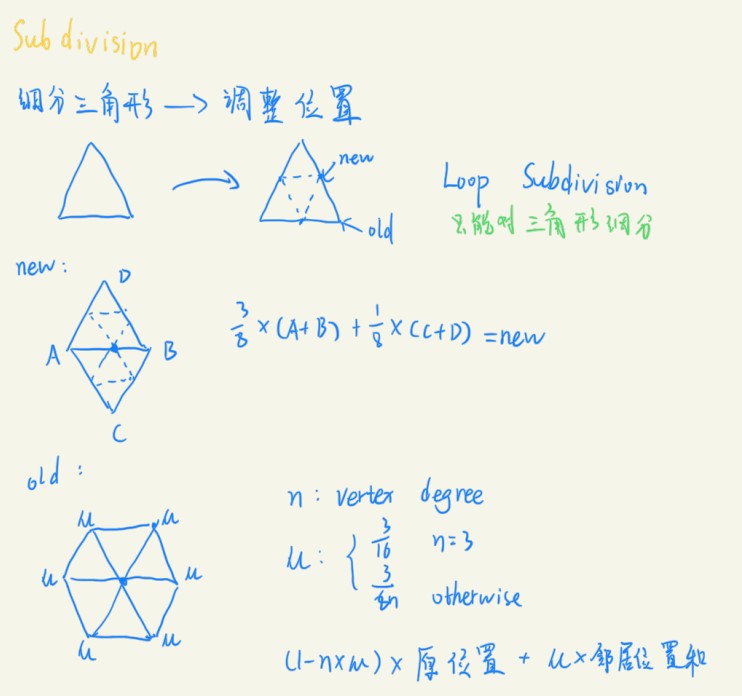 Subdivision
细分三角形 → 调整位置
new
old
Loop Subdivision
只能对三角形细分
new:
D
A
B
C
3/8 ×(A+B) + 1/8 ×(C+D) = new
old:
u u
u u
u u
n: vertex degree
u: { 3/16 n=3
3/8n otherwise
(1-n×u)× 原位置 + u×邻居位置和